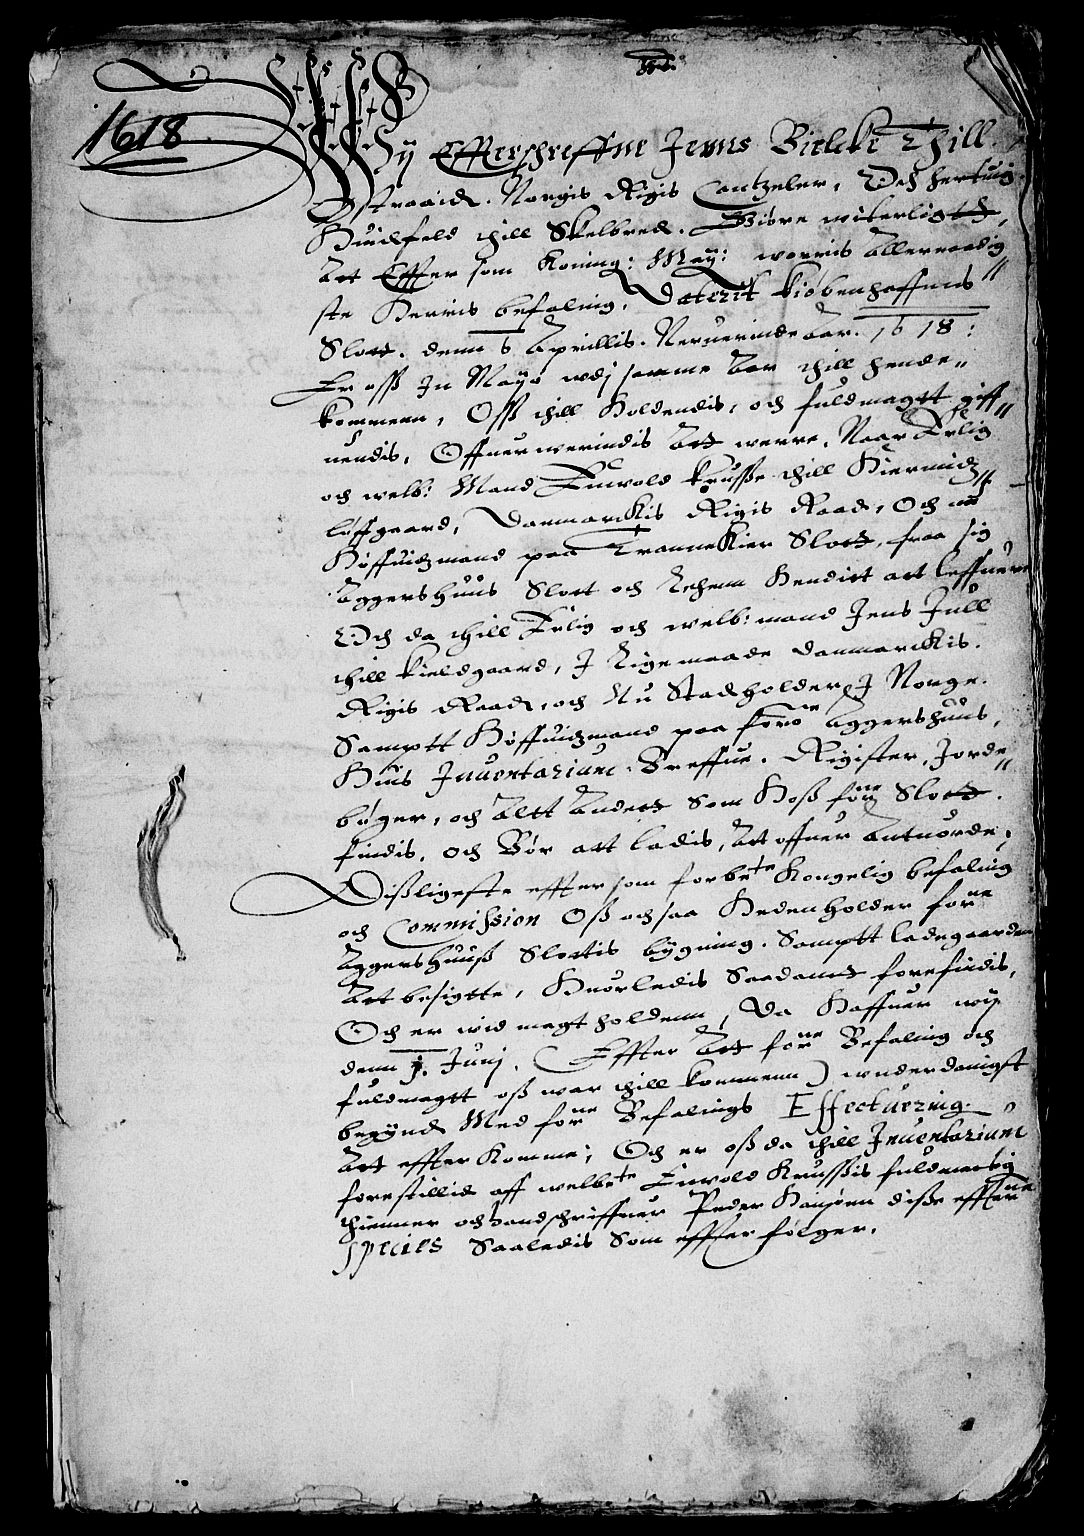 1618
Wÿ Effterschreffne Jenns Bielcke Thill
Østraaid. Norgis Rigis Cantzeler, Och Hertuig
Huidfeld thill Skelbred. Giøre witterligtt,
Att Effter som Koning: May: worris Allernaadig
ste Herris befaling, Daterit Kiøbenhaffuens
Slott. denn 6 Aprillis. Neruerinde Aar. 1618:
Er oss In Mayo udj samme Aar thill hende„
kommenn, Oss thill Holdendis, och fuldmagtt giff„
uendis, Offuerwerindis Att werre, Naar Erlig
och welb: Mand Enwold Krusse thill Hiermidz„
løffgaard, Danmarckis Rigis Raad, Och nu
Høffuidzmand paa Trannekier Slott, fraa sig
Aggershuus Slott och Lehenn Hendist att leffuere
Och da thill Erlig och welb: mand Jens Jull
thill Kieldgaard, J Ligemaade Danmarckis.
Rigis Raad, och Nu Stadholder J Norge.
Samptt Høffuidzmand paa forne Aggershuus,
Huis Inuentarium. Breffue. Register, Jorde„
bøger, och Altt Andett Som Hoss forne Slott.
findis, och Bør att ladis, Att offuer Antuorde,
Disligeste effter som forbete Kongelig befaling
och Commission Oss och saa Hedenholder forne
Aggershuuss Slottis bygning. Samptt ladegaarden
Att besigtte, Huorledis Saadantt forefindis,
Och er wid magt holdenn, Da Haffuer wij
denn 1. Junj, (Effter Att forne Befaling och
fuldmagtt oss war thill kommenn) wnderdanigst
begynd Med forne Befalings Effectuering
Att effter Komme; Och er oss da thill Inuentarium
forestillid aff welbete Enwold Krussis fuldmectig
thienner och Handschriffuer Peder Hansenn disse effterne
species Saaledis Som effter følger.